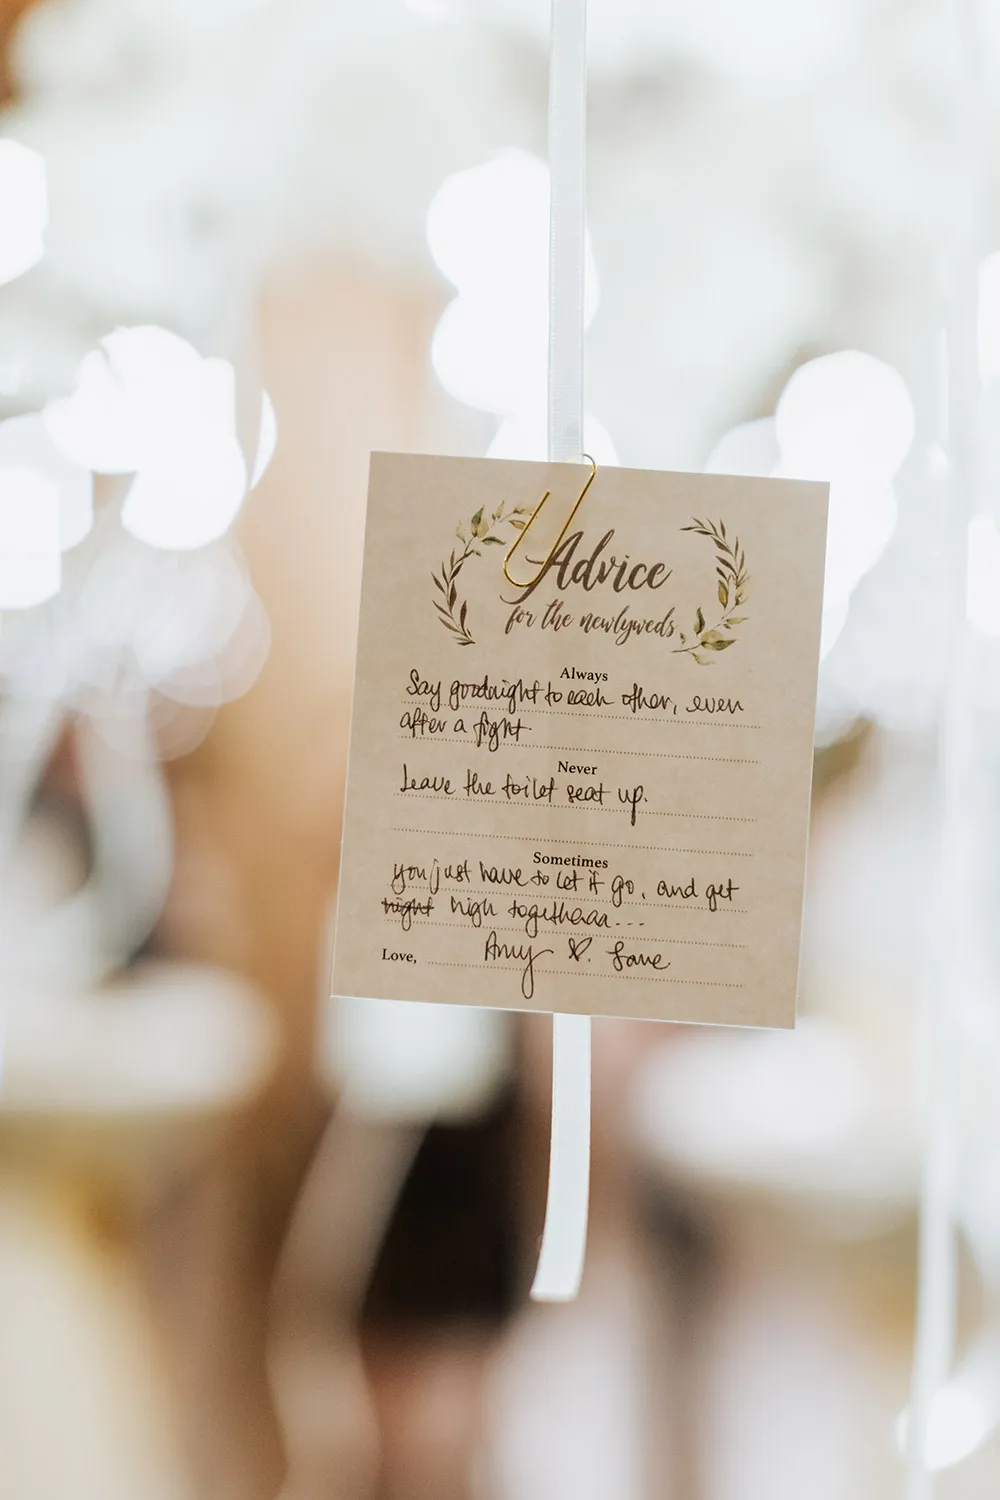 Advice
for the newlyweds
Always
Say goodnight to each other, even
after a fight.
Never
Leave the toilet seat up.
Sometimes
you just have to let it go, and get
night high togetheraa...
Love, Amy &. Lane